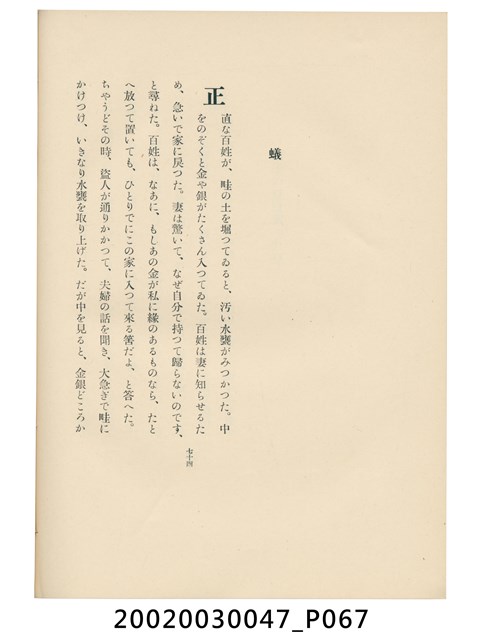 蟻
正直な百姓が、畦の土を堀つてゐると、汚い水甕がみつかつた。中
をのぞくと金や銀がたくさん入つてゐた。百姓は妻に知らせるた
め、急いで家に戻つた。妻は驚いて、なぜ自分で持つて歸らないのです、
と尋ねた。百姓は、なあに、もしあの金が私に緣のあるものなら、たと
へ放つて置いても、ひとりでにこの家に入つて來る筈だよ、と答へた。
ちやうどその時、盜人が通りかかつて、夫婦の話を聞き、大急ぎで畦に
かけつけ、いきなり水甕を取り上げた。だが中を見ると、金銀どころか
七十四
20020030047_P067